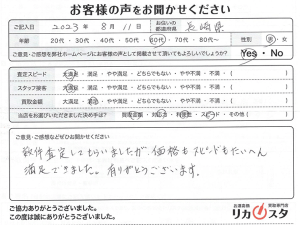 お客様の声をお聞かせください
ご記入日 2023年 8月 11日 お住いの都道府県 長崎県
年齢 20代・30代・40代・50代・60代・70代・80代～ 性別 男・女
ご意見・ご感想を弊社ホームページにお客様の声として掲載させて頂いてもよろしいでしょうか? Yes・No
査定スピード 大満足・満足・やや満足・どちらでもない・やや不満・不満 ( )
スタッフ接客 大満足・満足・やや満足・どちらでもない・やや不満・不満 ( )
買取金額 大満足・満足・やや満足・どちらでもない・やや不満・不満 ( )
当店をお選びいただきました決め手は? 買取金額・対応力・利便性・スピード・その他 ( )
ご意見・ご感想などぜひお聞かせください
数件査定してもらいましたが、価格もスピードもたいへん
満足できました。有りがとうございます。
ご協力ありがとうございました。
この度は誠にありがとうございました。
お酒買取専門店
リカスタ